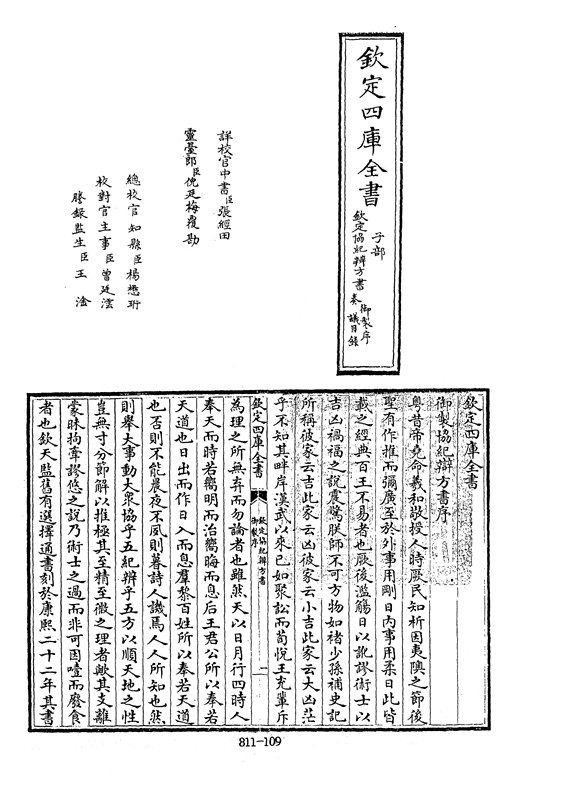 欽定四庫全書
子部
欽定協紀辨方書
御製序
奏議目錄
詳校官中書臣張經田
靈臺郎臣倪廷梅覆勘
總校官知縣臣楊懋珩
校對官主事臣曾廷澐
謄錄監生臣王淦
欽定四庫全書
御製協紀辯方書序
粵昔帝堯命羲和敬授人時厥民知析因夷隩之節後
聖有作推而彌廣至於外事用剛日內事用柔日此皆
載之經典百王不易者也厥後濫觴日以訛謬術士以
吉凶禍福之說震驚朕師不可方物如褚少孫補史記
所稱彼家云吉此家云凶彼家云小吉此家云大凶茫
乎不知其畔岸漢武以來已如聚訟而荀悅王充輩斥
欽定四庫全書
御製序
欽定協紀辨方書
一
為理之所無弃而勿論者也雖然天以日月行四時人
奉天而時若嚮明而治嚮晦而息后王君公所以奉若
天道也日出而作日入而息羣黎百姓所以奉若天道
也否則不能晨夜不夙則暮詩人譏焉人人所知也然
則舉大事動大衆協乎五紀辨乎五方以順天地之性
豈無寸分節解以推極其至精至微之理者歟其支離
蒙昧拘牽謬悠之說乃術士之過而非可因噎而廢食
者也欽天監舊有選擇通書刻於康熙二十二年其書
811-109